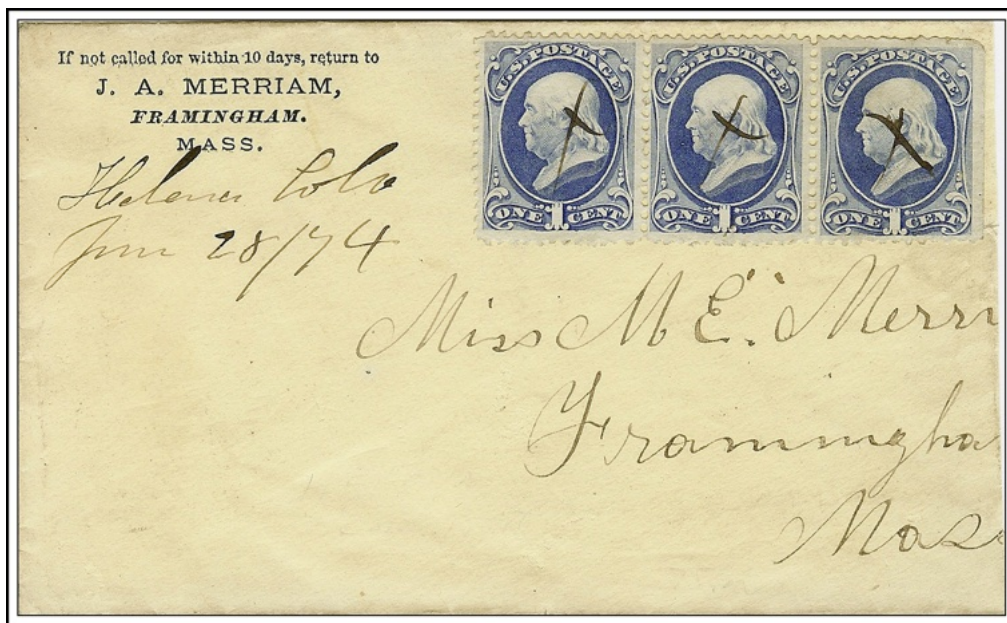 If not called for within 10 days, return to
J. A. MERRIAM,
FRAMINGHAM.
MASS.
Helena Colo
Jun 28/74
U.S. POSTAGE
ONE 1 CENT
U.S. POSTAGE
ONE 1 CENT
U.S. POSTAGE
ONE 1 CENT
Miss M E. Merri
Framingha
Mass